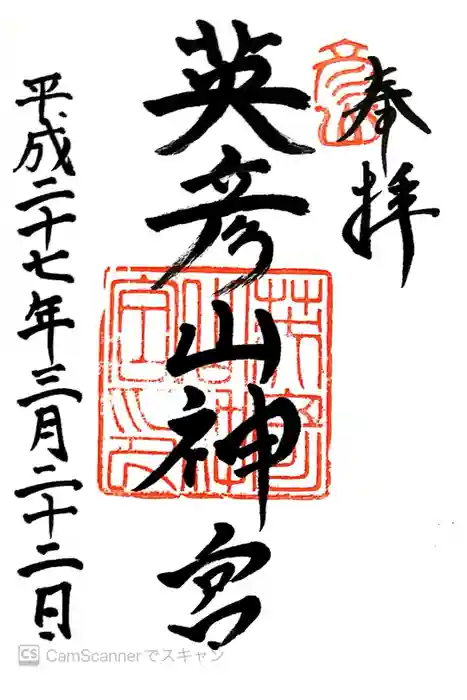 奉拝
英彦山神宮
平成二十七年三月二十二日
CS CamScannerでスキャン